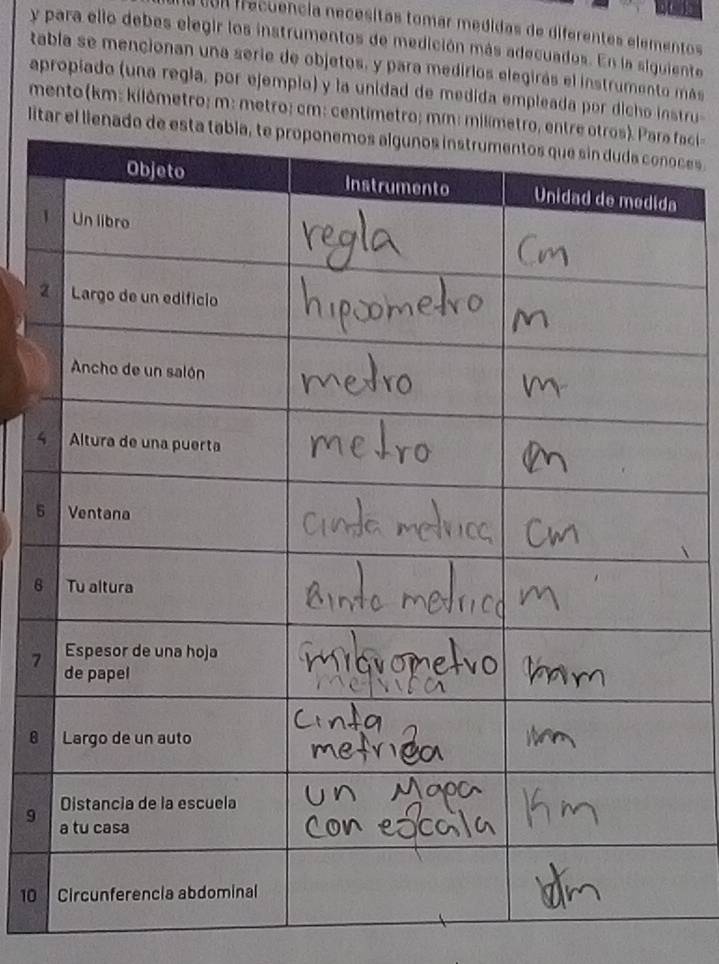 con frecuencia necesitas tomar medidas de diferentes elementos
y para ello debes elegir los instrumentos de medición más adecuados. En la siguiente
tabla se mencionan una serie de objetos, y para medirlos elegirás el instrumento más
apropiado (una regla, por ejemplo) y la unidad de medida empleada por dicho instru-
mento (km: kilómetro; m: metro; cm: centímetro; mm: milímetro, entre otros). Para faci-
litar el llenado de esta tabla, te proponemos algunos instrumentos que sin duda conoces.
Objeto Instrumento Unidad de medida
1 Un libro regla Cm
2 Largo de un edificio hipsometro m
Ancho de un salón metro m
4 Altura de una puerta metro m
5 Ventana cinta metrica Cm
6 Tu altura Cinta metrica m
7 Espesor de una hoja
de papel
micrometro mm
metrica
8 Largo de un auto
Cinta
metrica
mm
9 Distancia de la escuela
a tu casa
un Mapa
con escala
Km
10 Circunferencia abdominal